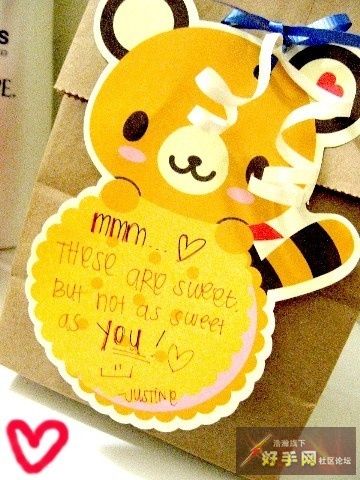 S
PE.
mmm...♡
These are sweet.
But not as sweet
as you! ♡
-Justine
浩瀚线下
好手网社区论坛